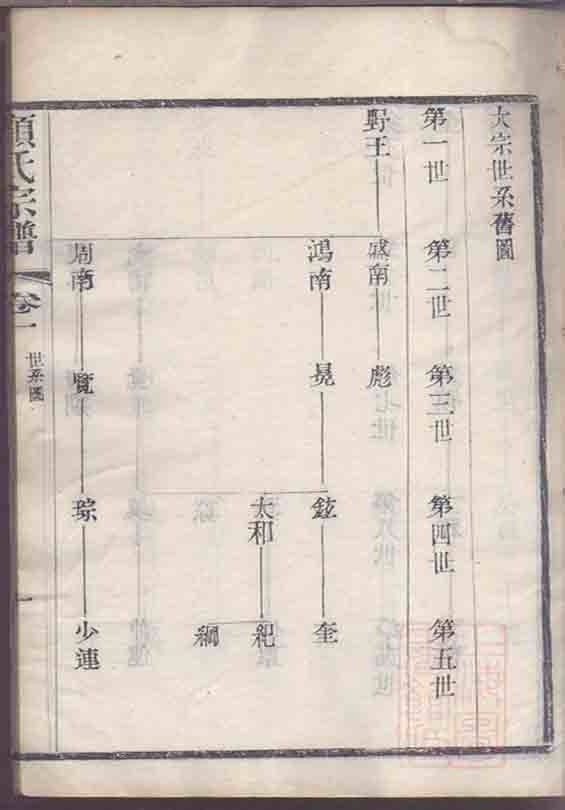 大宗世系舊圖
第一世
第二世
第三世
第四世
第五世
野王
盛南
彪
鴻南
晃
鉉
奎
太和
紀
綱
周南
覽
琮
少連
顧氏宗譜
卷一
世系圖
一